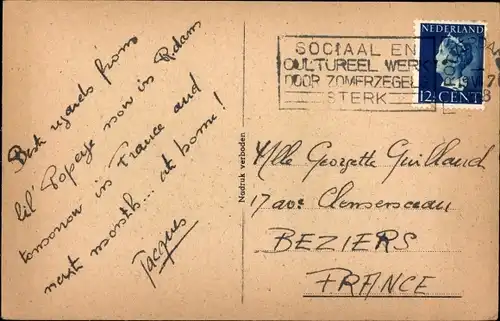 Best regards from
lil' Popeye now in R.dam
tomorrow in France and
next month... at home!
Jacques
Nadruk verboden
SOCIAAL EN
CULTUREEL WERK
DOOR ZOMERZEGEL
STERK
NEDERLAND
12½ CENT
Mlle Georgette Guilland
17 ave Clemenceau
BEZIERS
FRANCE